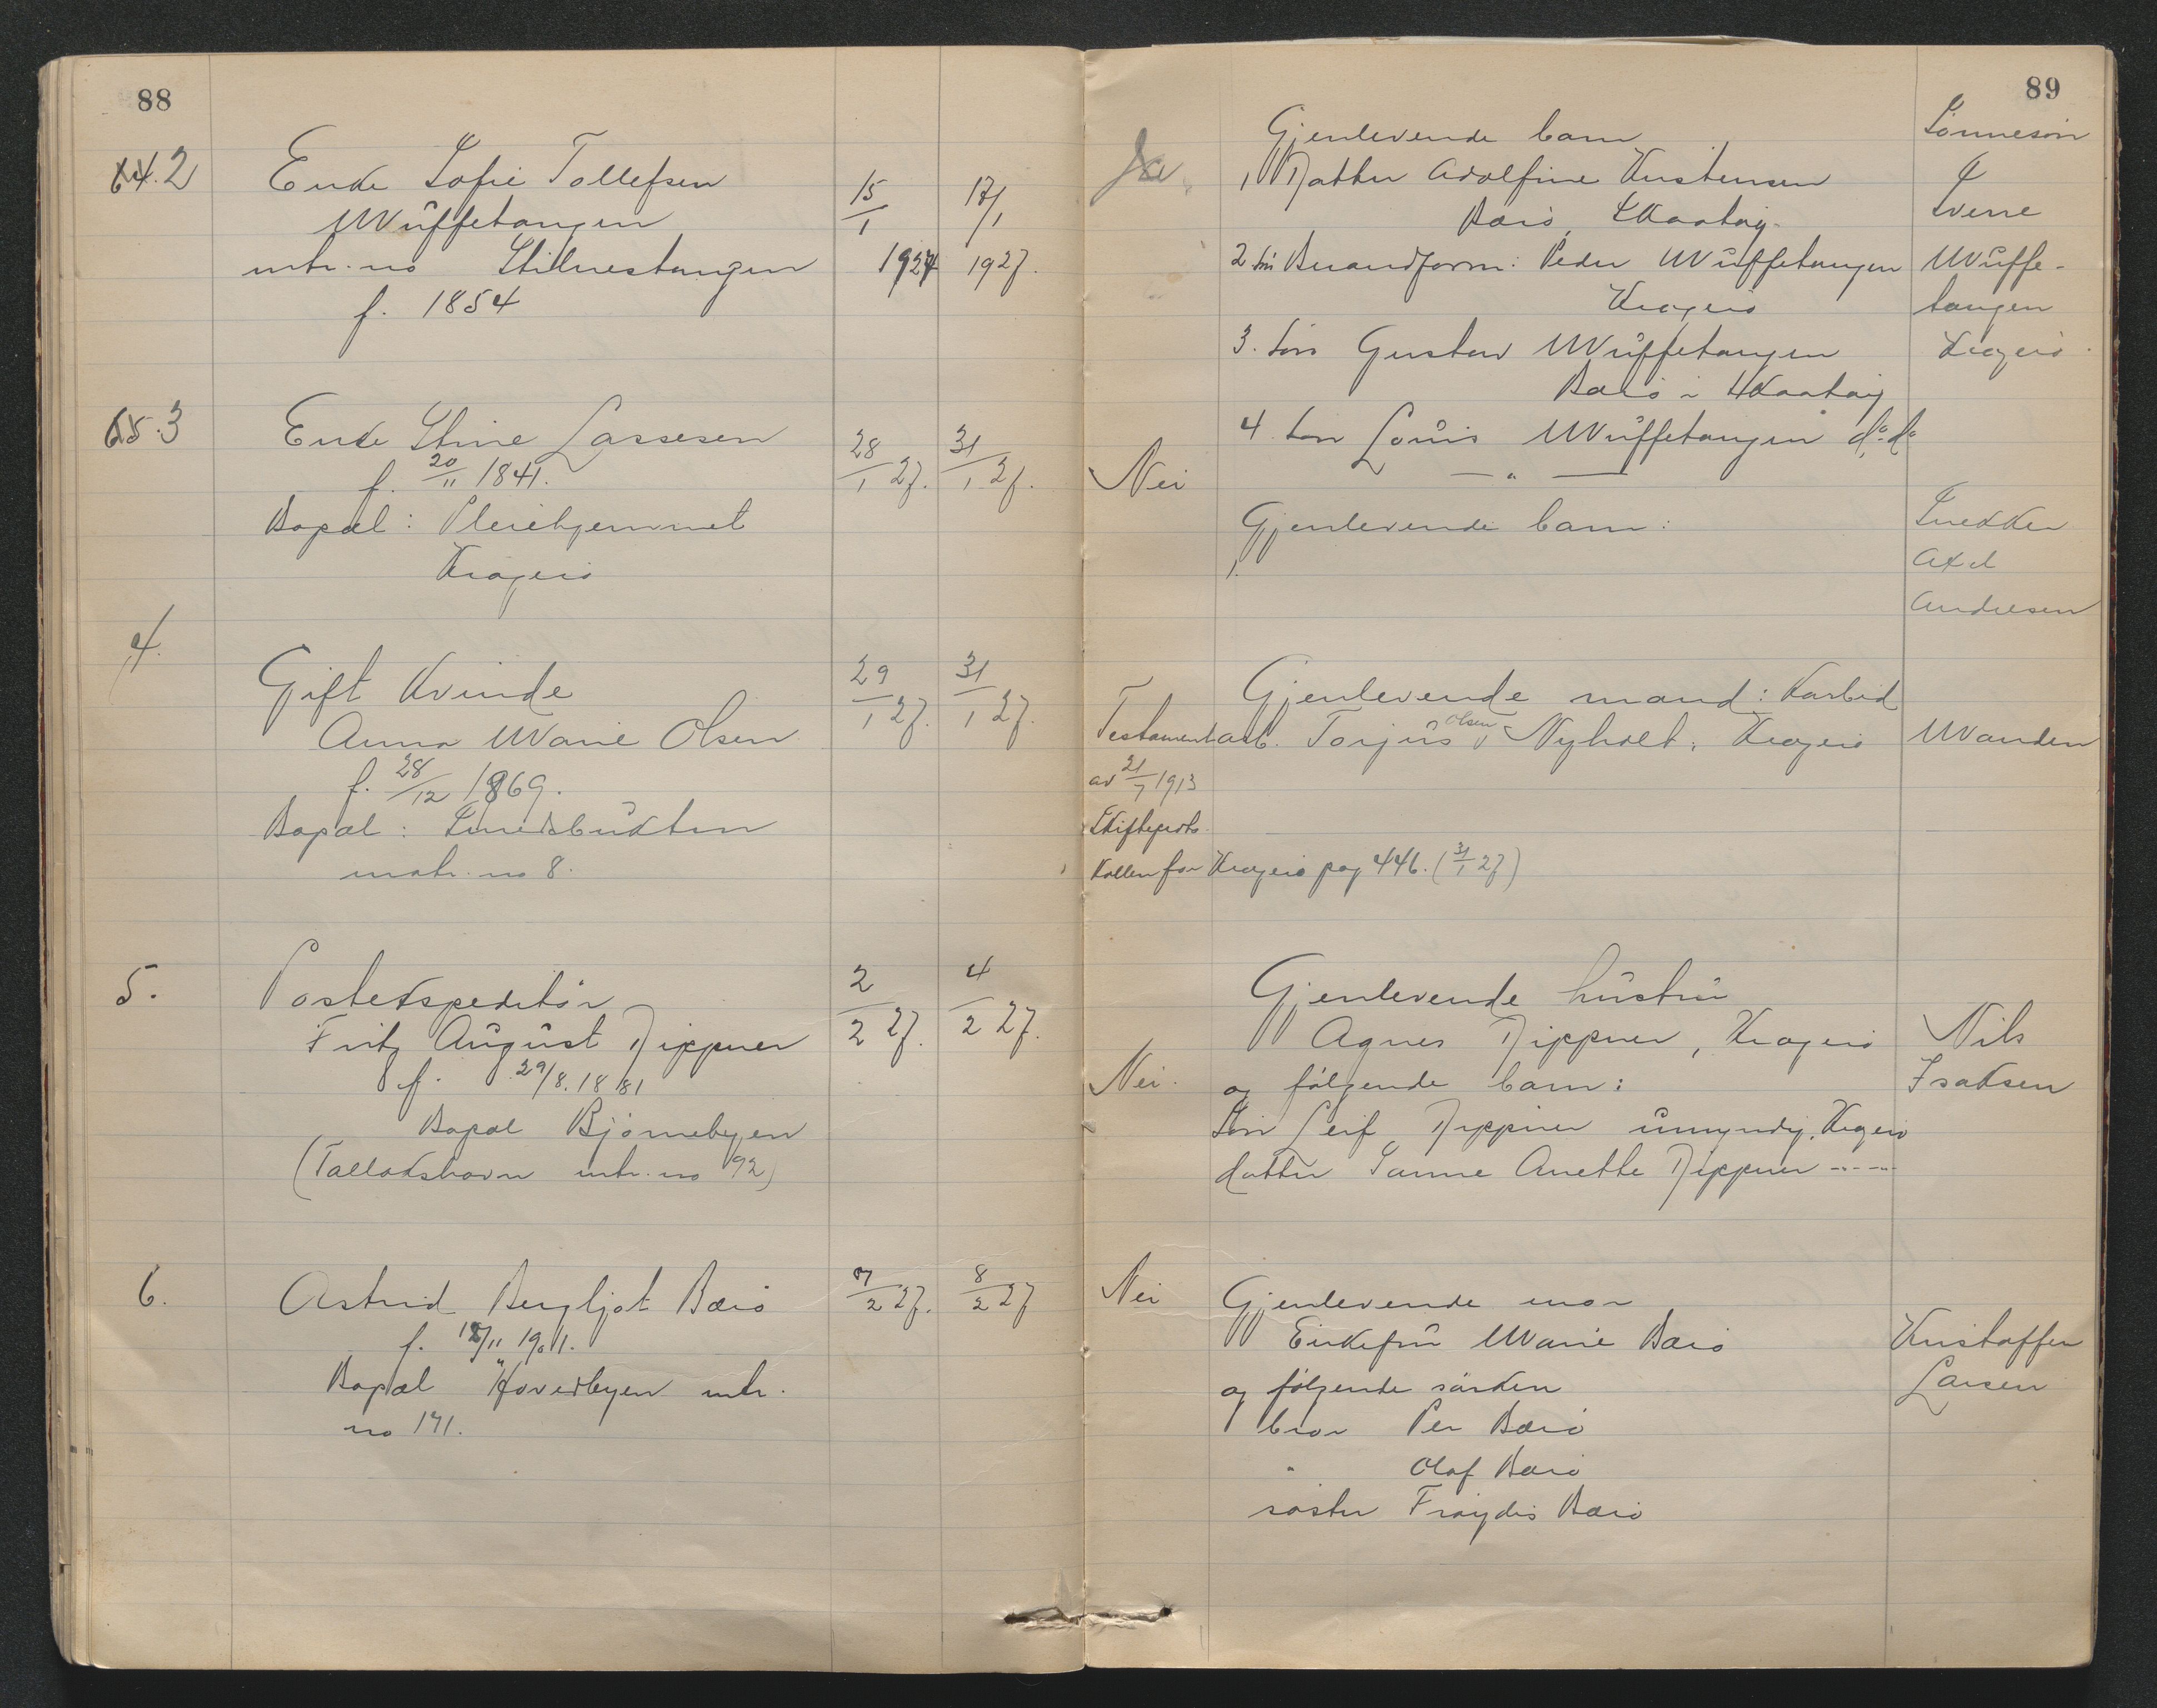 88
64. 2
Enke Sofie Tollefsen
Muffetangen
mtr. no Stilnestangen
f. 1854
15/1 1927
17/1 1927.
65. 3
Enke Stine Lassesen
f. 20/11 1841.
Bopæl: Pleiehjemmet
Kragerø
28/1 27.
31/1 27.
4.
Gift Kvinde
Anna Marie Olsen
f. 28/12 1869.
Bopæl: Smedsbukten
matr. no 8.
29/1 27.
31/1 27.
5.
Postekspeditør
Fritz August Dippner
f. 29/8. 1881
Bopæl Bjørnebyen
(Tallakshavn mtr. no 92)
2/2 27.
4/2 27.
6.
Astrid Bergljot Barø
f. 18/11 1911.
Bopæl Hovedbyen mtr.
no 171.
7/2 27.
8/2 27
89
Ja
Gjenlevende barn
1, Datter Adolfine Kristensen
Barø, Skaatøy
2 søn Brandform: Peder Muffetangen
Kragerø
3. søn Gustav Muffetangen
Barø i Skaatøy
4. søn Louis Muffetangen do. do
— " —
Sønnesøn
Sverre
Muffe-
tangen
Kragerø.
Nei
Gjenlevende barn:
1.
Snekker
Axel
Andresen
Gjenlevende mand: Karbid
Testament arb. Torjus Olsen Nyholt, Kragerø
av 21/7 1913
Skifteproto-
kollen for Kragerø pag 446. (31/1 27)
Manden
Gjenlevende hustru
Agnes Dippner, Kragerø
Nei. og følgende barn:
Søn Leif Dippner umyndig, Kragerø
datter Sanne Anette Dippner -"- -"-
Nils
Isaksen
Nei Gjenlevende mor
Enkefru Marie Barø
og følgende søsken
bror Per Barø
" Olaf Barø
søster Frøydis Barø
Kristoffer
Larsen